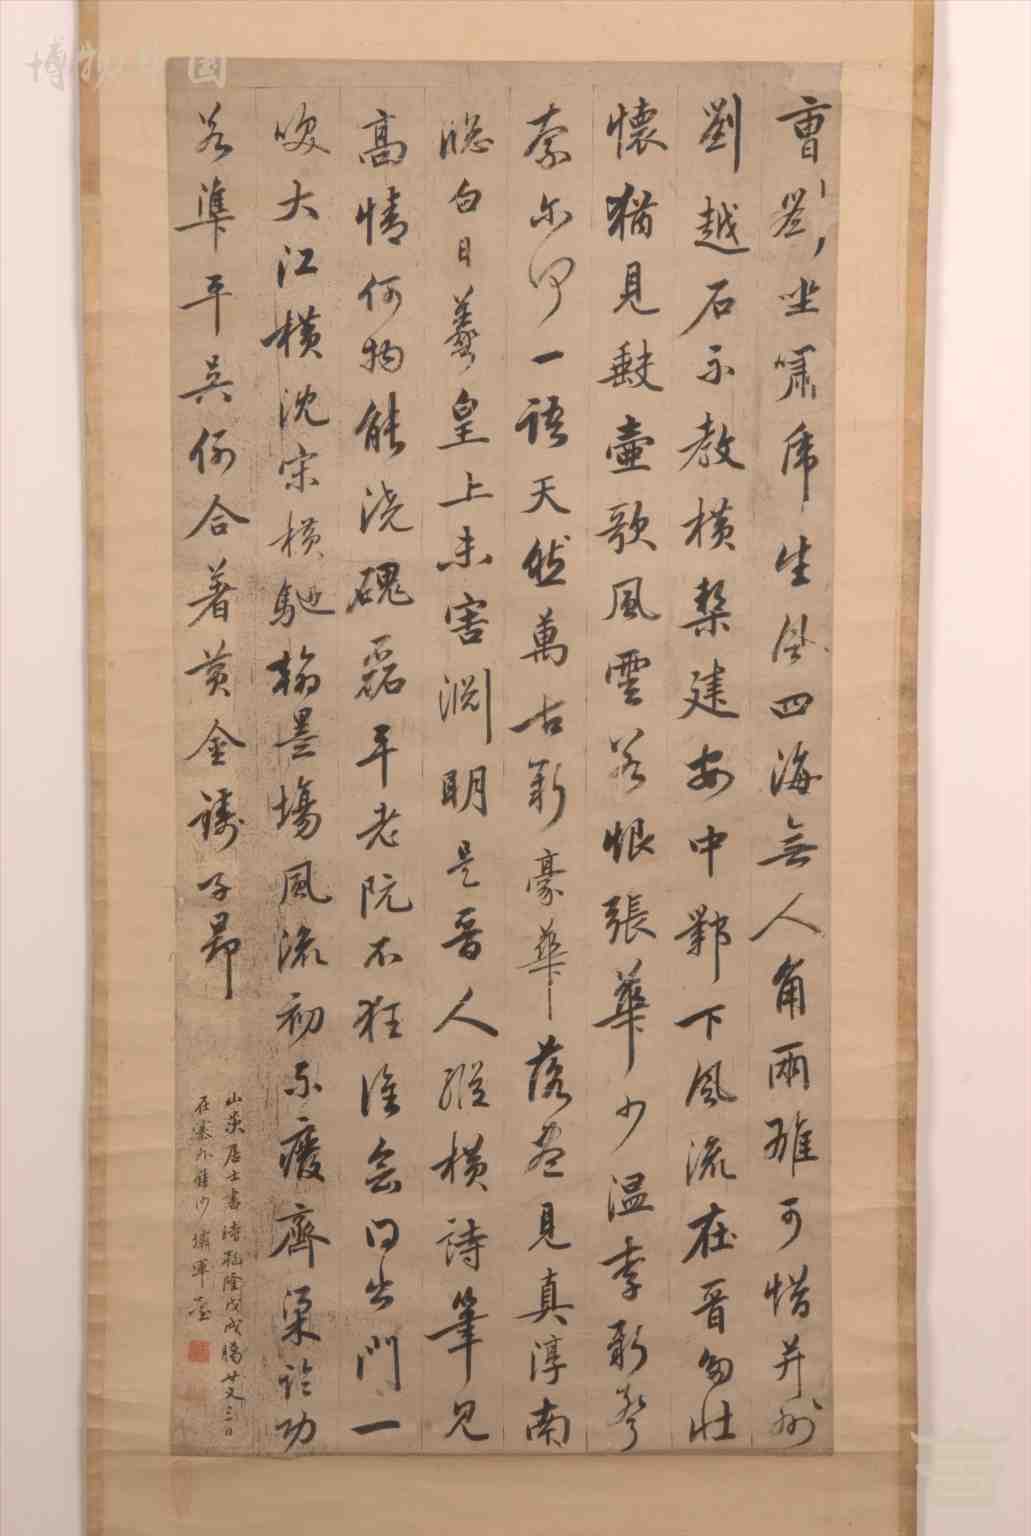 曹劉坐嘯虎生風四海無人角兩雄可惜并州
劉越石不教橫槊建安中鄴下風流在晉多壯
懷猶見缺壺歌風雲若恨張華少溫李新聲
奈尔何一語天然萬古新豪華落盡見真淳南
窓白日羲皇上未害淵明是晉人縱橫詩筆見
高情何物能澆磈磊平老阮不狂誰會得出門一
笑大江橫沈宋橫馳翰墨場風流初不廢齊梁論功
若準平吳例合著黃金鑄子昂
山英居士書時乾隆戊戌臘廿又三日
在塞外軍臺
博物中國